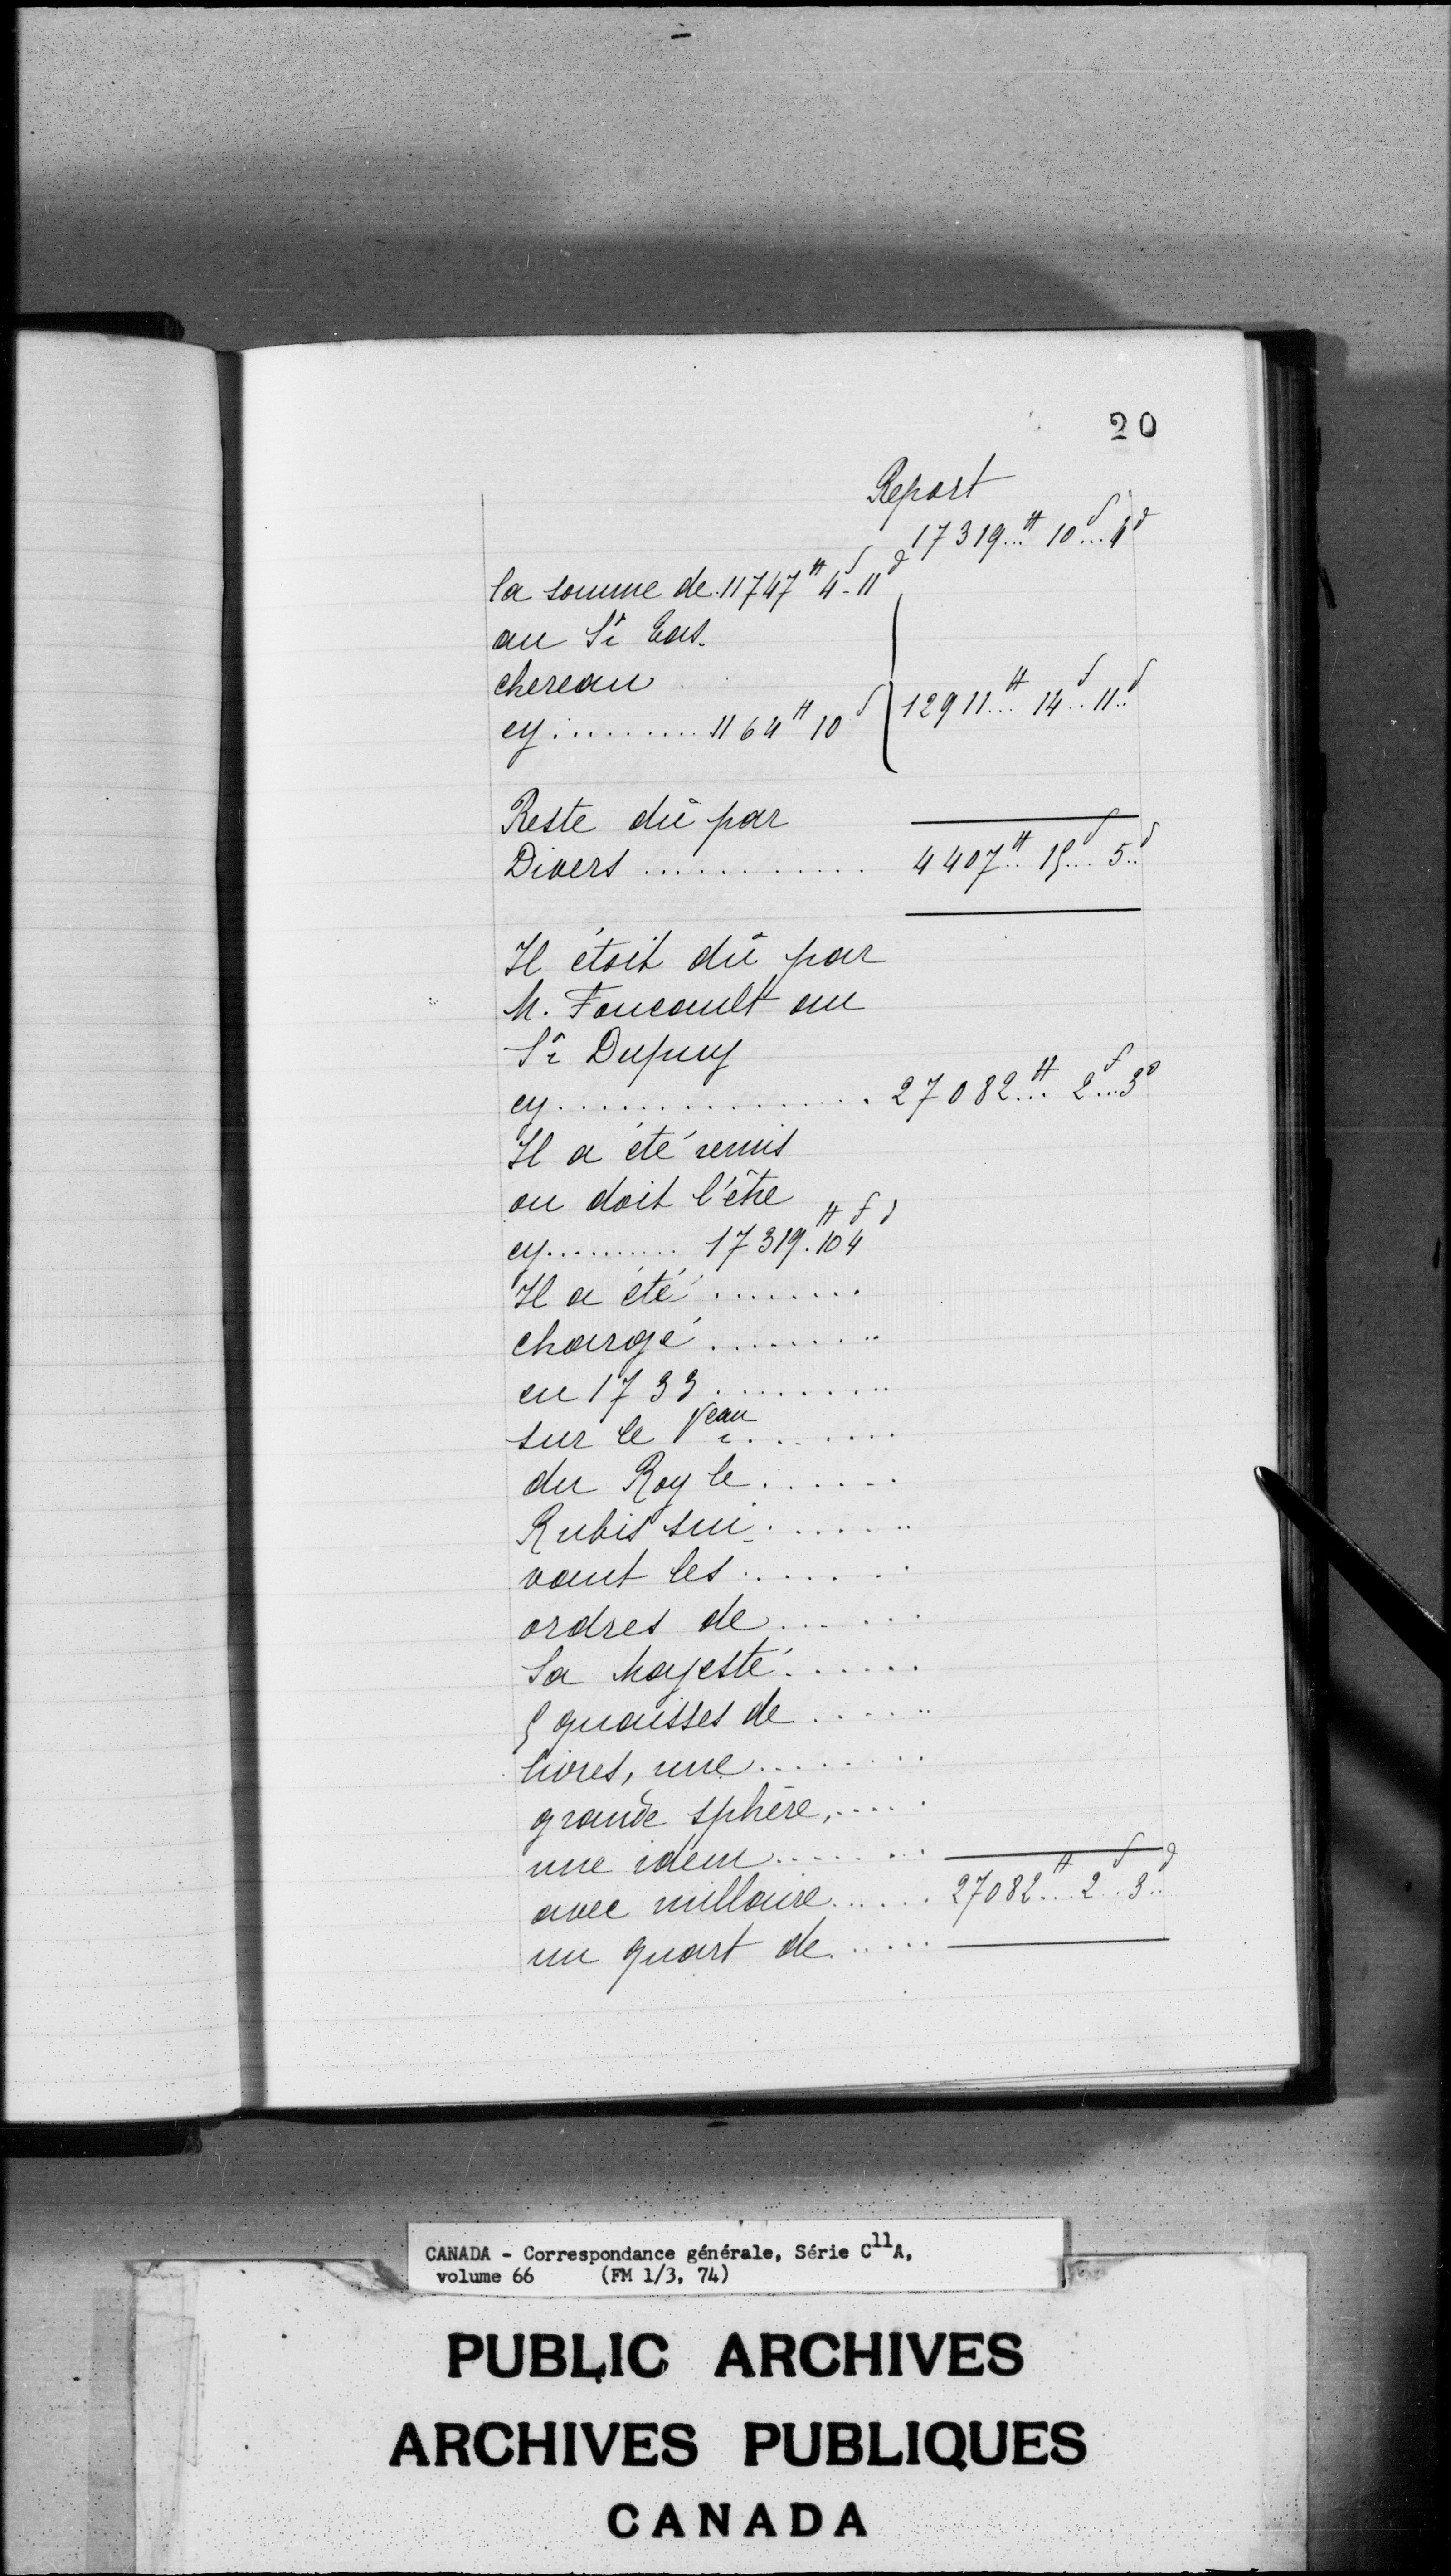 20
Report
17319...# 10 s... 4 d
la somme de 11747 # 4 s - 11 d
au Sr Cus-
chereau
cy ......... 1164 # 10 s
12911...# 14 s.. 11 d..
Reste dû par
Divers ............ 4407 #.. 15 s... 5 d..
Il étoit dû par
M. Foucault au
Sr Dupuy
cy ................ 27082 #... 2 s... 3 d
Il a été remis
ou doit l'être
cy .......... 17319 #. 10 s 4 d
Il a été ........
chargé .........
en 1733 ..........
sur le Veau ........
du Roy le .......
Rubis sui- .......
vant les .......
ordres de ......
Sa Majesté .......
5 quaisses de ......
livres, une ........
grande sphère, .....
une idem ........
avec millaire ...... 27082 #... 2 s.. 3 d..
un quart de ......
CANADA - Correspondance générale, Série C11A,
volume 66 (FM 1/3, 74)
PUBLIC ARCHIVES
ARCHIVES PUBLIQUES
CANADA